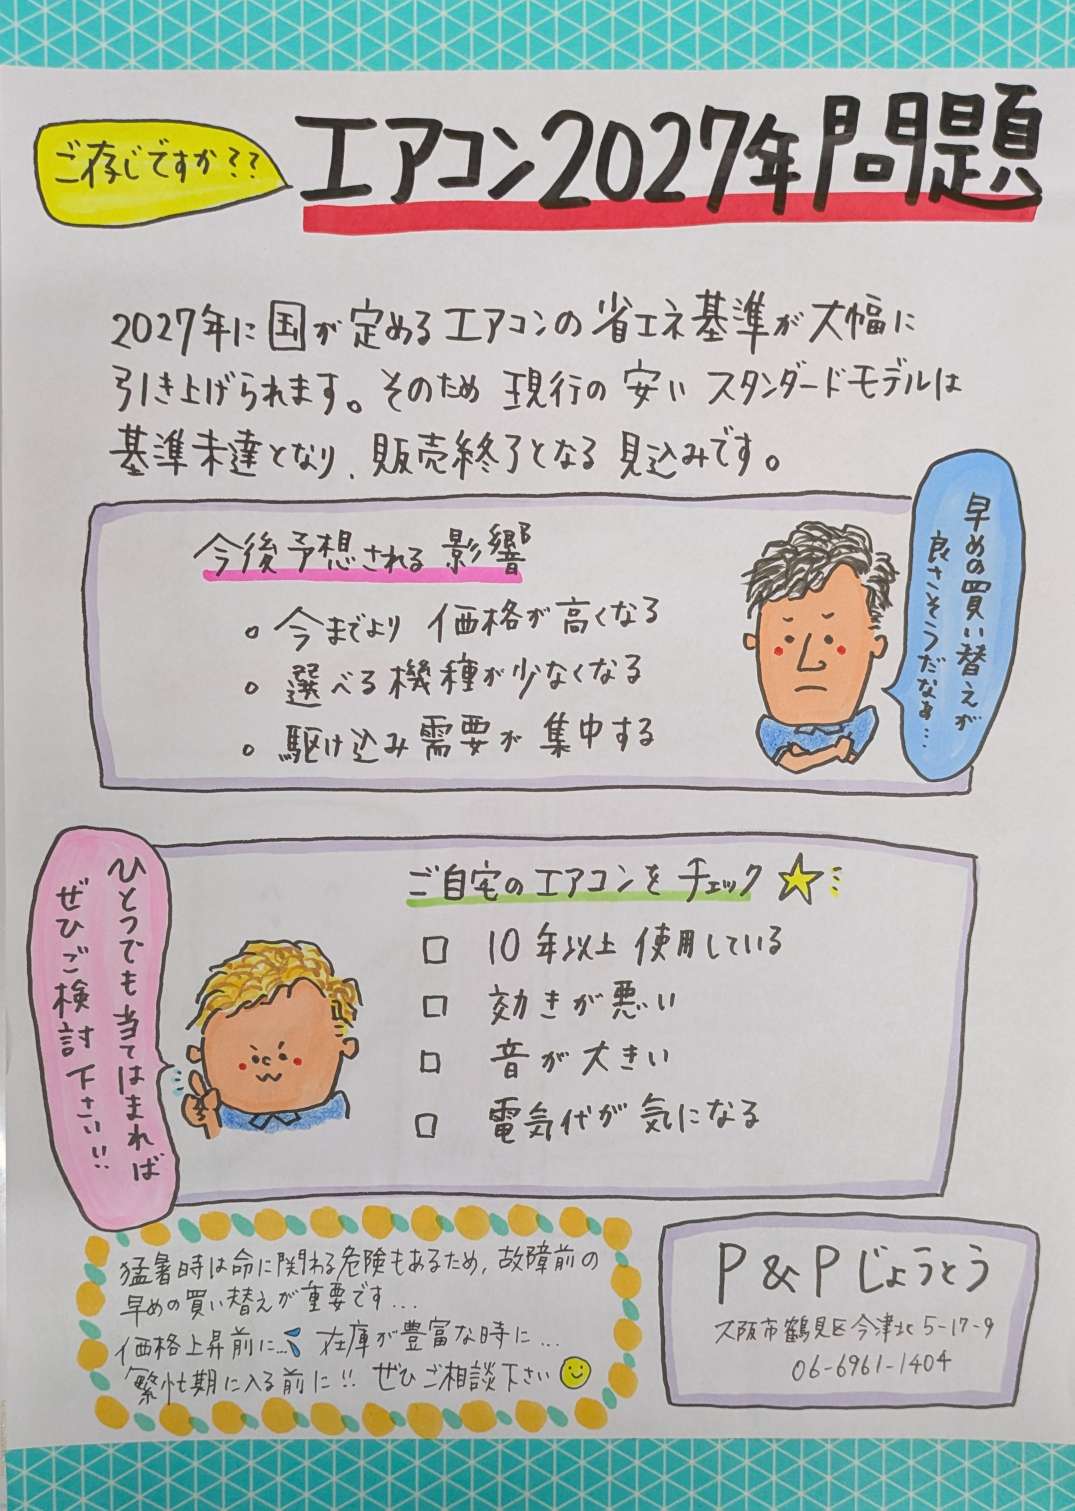 ご存じですか??
エアコン2027年問題
2027年に国が定めるエアコンの省エネ基準が大幅に
引き上げられます。そのため現行の安いスタンダードモデルは
基準未達となり、販売終了となる見込みです。
今後予想される影響
。今までより価格が高くなる
。選べる機種が少なくなる
。駆け込み需要が集中する
早めの買い替えが
良さそうだなぁ…
ご自宅のエアコンをチェック
□ 10年以上使用している
□ 効きが悪い
□ 音が大きい
□ 電気代が気になる
ひとつでも当てはまれば
ぜひご検討下さい!!
猛暑時は命に関わる危険もあるため、故障前の
早めの買い替えが重要です...
価格上昇前に... 在庫が豊富な時に...
繁忙期に入る前に!! ぜひご相談下さい
P&Pじょうとう
大阪市鶴見区今津北5-17-9
06-6961-1404